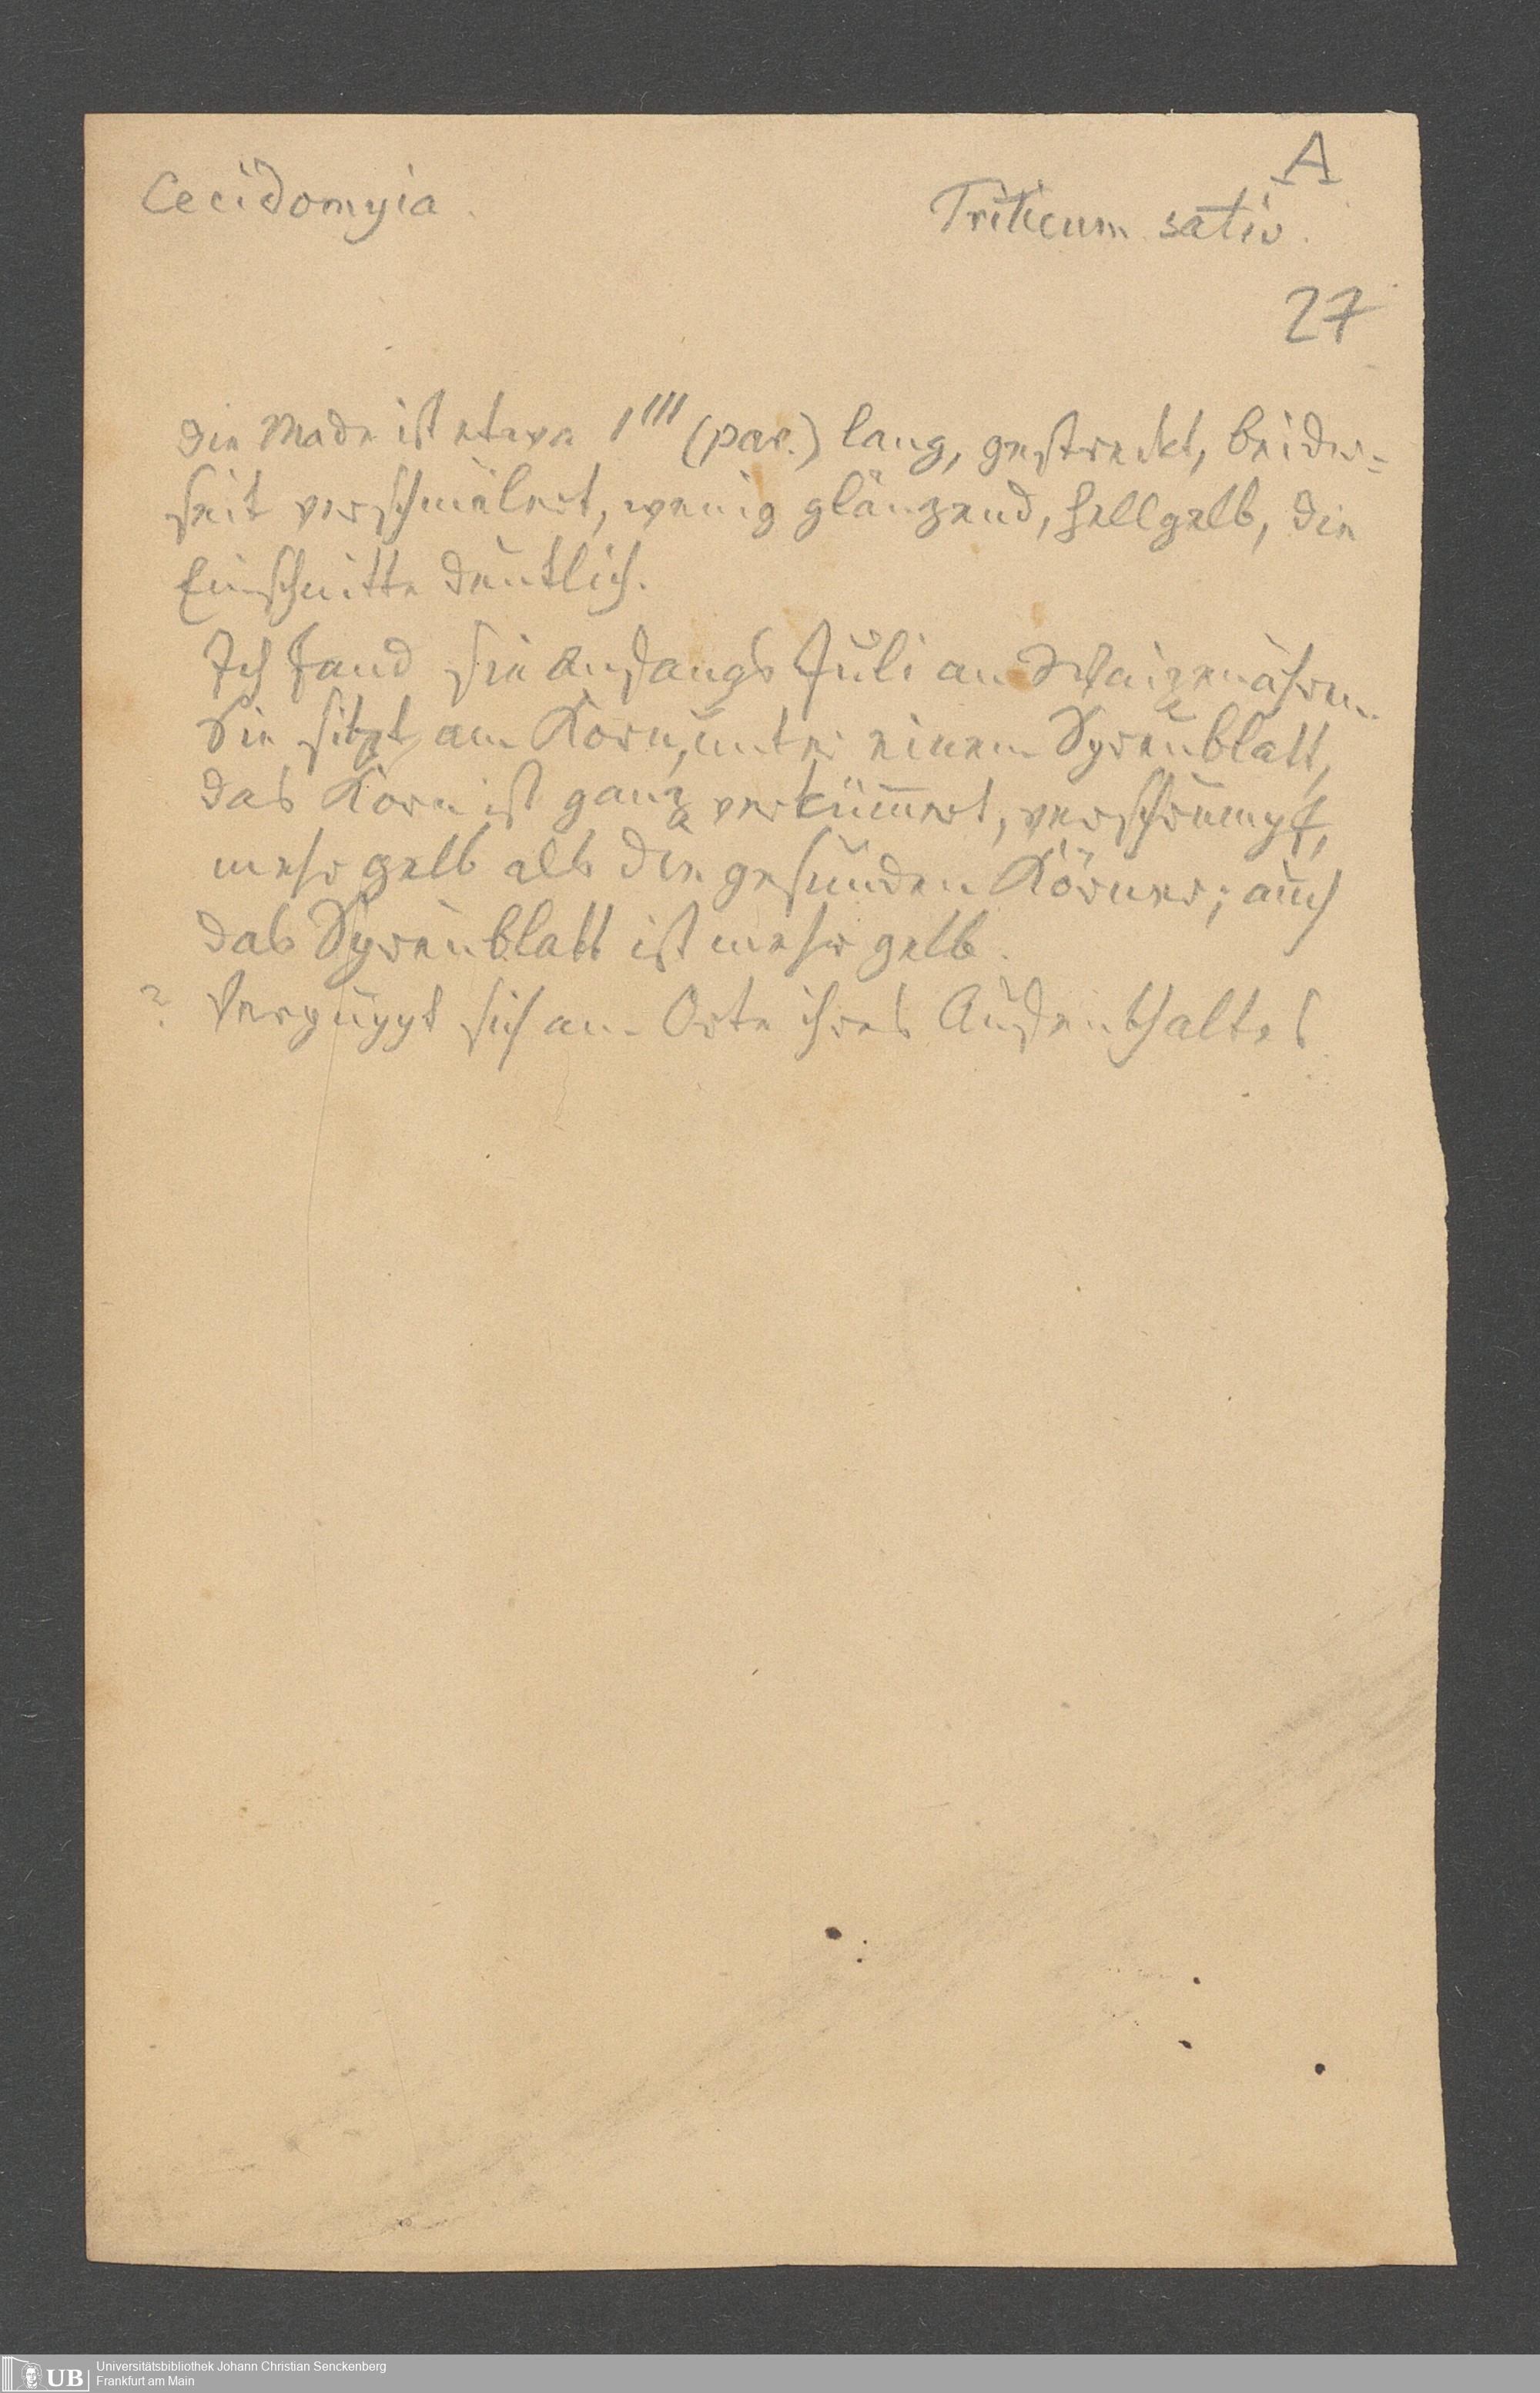 A
Cecidomyia.
Triticum sativ.
27
Die Made ist etwa 1''' (par.) lang, gestreckt, beider-
seit verschmälert, wenig glänzend, hellgelb, die
Einschnitte deutlich.
Ich fand sie Anfangs Juli an Waizenähren.
Sie sitzt am Korn, unter einem Spreublatt,
das Korn ist ganz verküm̅ert, verschrumpft,
mehr gelb als die gesunden Körner; auch
das Spreublatt ist mehr gelb.
? Verpuppt sich am Orte ihres Aufenthaltes
UB
Universitätsbibliothek Johann Christian Senckenberg
Frankfurt am Main